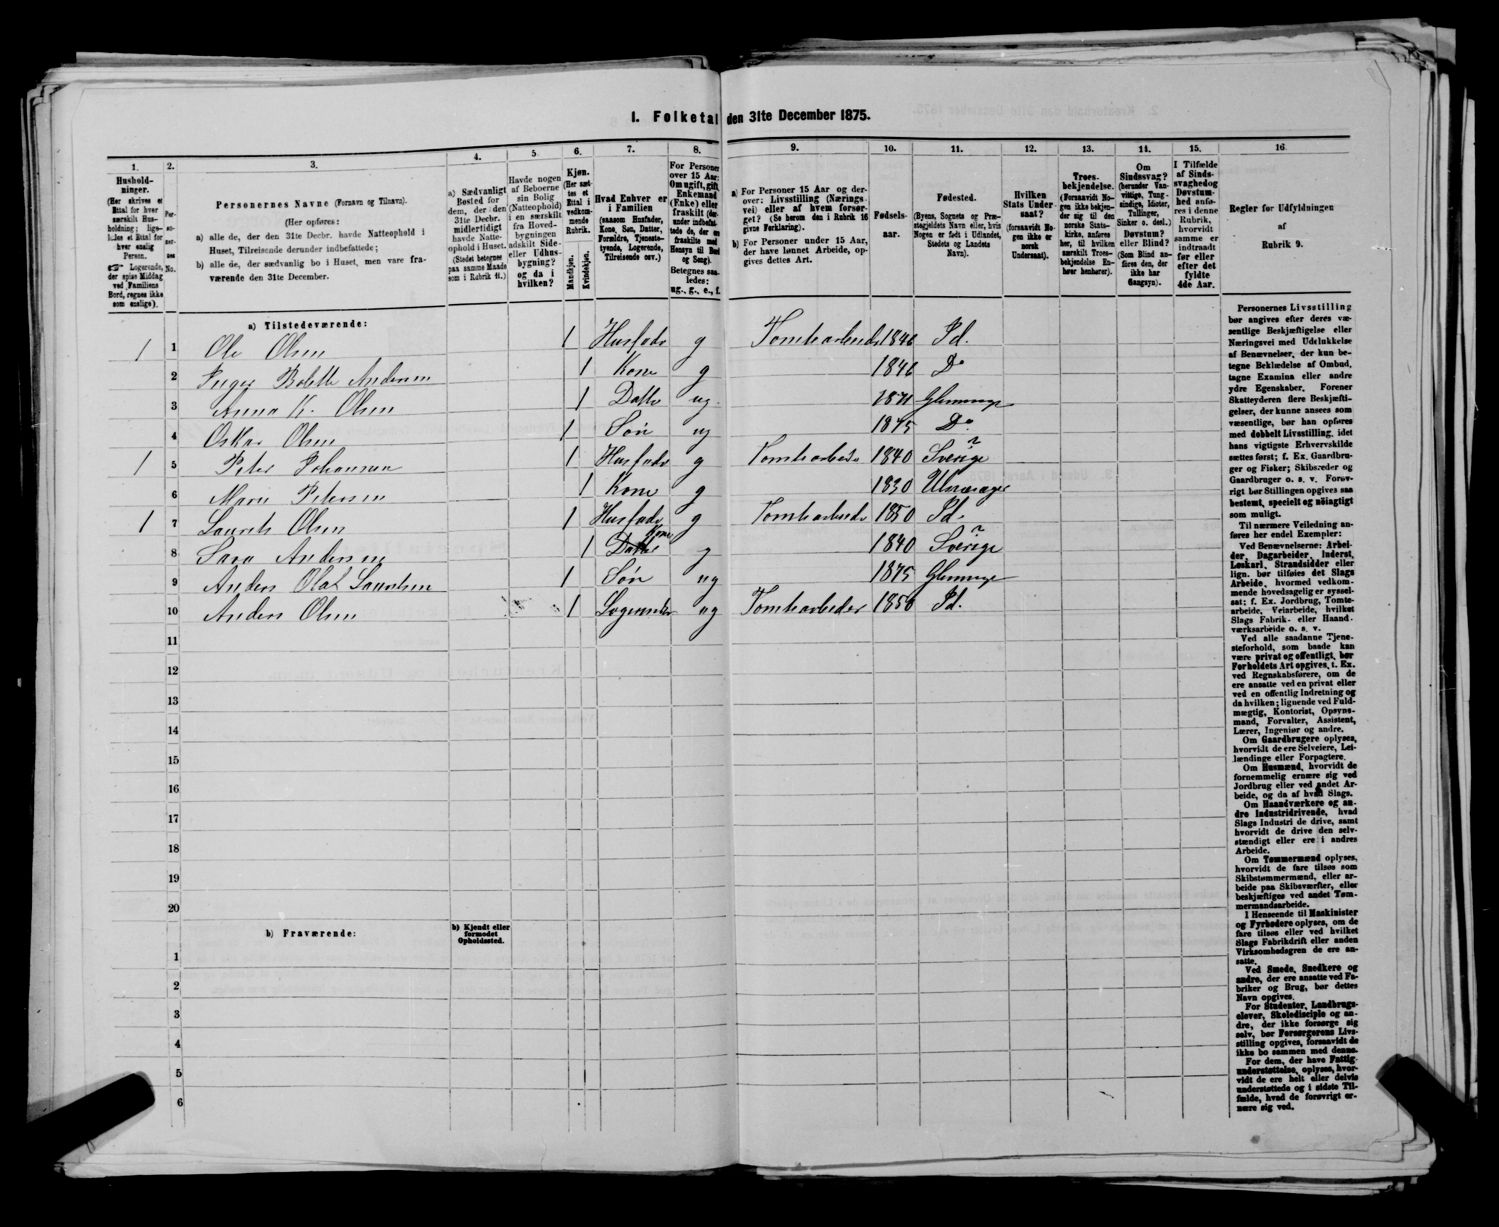 I. Folketal den 31te December 1875.
1. 2. 3. 4. 5. 6. 7. 8. 9. 10. 11. 12. 13. 14. 15. 16
Hushold-
ninger.
(Her skrives et
Ettal for hver
særskilt Hus-
holdning; lige-
ledes et Ettal for
hver enslig
Person.
Logerende,
der spise Middag
ved Familiens
Bord, regnes ikke
som enslige).
Per-
so-
ner-
nes
No.
Personernes Navne (Fornavn og Tilnavn).
(Her opføres:
a) alle de, der den 31te Decbr. havde Natteophold i
Huset, Tilreisende derunder indbefattede;
b) alle de, der sædvanlig bo i Huset, men vare fra-
værende den 31te December.
a) Sædvanligt
Bosted for
dem, der den
31te Decbr.
midlertidigt
havde Natte-
ophold i Huset.
(Stedet betegnes
paa samme Maade
som i Rubrik 11.)
Havde nogen
af Beboerne
sin Bolig
(Natteophold)
i en særskilt
fra Hoved-
bygningen
adskilt Side-
eller Udhus-
bygning?
og da i
hvilken?
Kjøn.
(Her sæt-
tes et
Ettal i
vedkom-
mende
Rubrik.
Mandkjøn.
Kvindekjøn.
Hvad Enhver er
i Familien
(saasom Husfader,
Kone, Søn, Datter,
Forældre, Tjeneste-
tyende, Logerende,
Tilreisende osv.)
For Personer
over 15 Aar:
Om ugift, gift,
Enkemand
(Enke) eller
fraskilt
Betegnes saa-
ledes:
ug., g., e., f.
a) For Personer 15 Aar og der-
over: Livsstilling (Nærings-
vei) eller af hvem forsør-
get? (Se herom den i Rubrik 16
givne Forklaring).
b) For Personer under 15 Aar,
der have lønnet Arbeide, op-
gives dettes Art.
Fødsels-
aar.
Fødested.
(Byens, Sognets og Præ-
stegjeldets Navn eller, hvis
Nogen er født i Udlandet,
Stedets og Landets
Navn).
Hvilken
Stats Under-
saat?
(forsaavidt No-
gen ikke er
norsk
Undersaat).
Troes-
bekjendelse.
(Forsaavidt No-
gen ikke bekjen-
der sig til den
norske Stats-
kirke, anføres
her, til hvilken
særskilt Troes-
bekjendelse En-
hver henhører).
Om
Sindssvag?
(herunder Van-
vittige, Tung-
sindige, Idioter,
Tullinger,
Sinker o. desl.)
Døvstum?
eller Blind?
(Som Blind an-
føres den, der
ikke har
Gangsyn).
I Tilfælde
af Sinds-
svaghed og
Døvstum-
hed anfø-
res i denne
Rubrik,
hvorvidt
samme er
indtraadt
før eller
efter det
fyldte
4de Aar.
Regler for Udfyldningen
af
Rubrik 9.
a) Tilstedeværende:
1 1 Ole Olsen 1 Husfader g Tomtearbeider 1846 Id.
2 Inger Bolette Andersen 1 Kone g 1846 Do
3 Anna K. Olsen 1 Datter ug 1871 Glemminge
4 Oskar Olsen 1 Søn ug 1875 Do
1 5 Peter Johansen 1 Husfader g Tomtearbeider 1840 Sverige
6 Maria Petersen 1 Kone g 1830
1 7 Laurits Olsen 1 Husfader g Tomtearbeider 1850 Id.
8 Sara Andersen 1 Datter Kone g 1840 Sverige
9 Anders Olaf Lauritsen 1 Søn ug 1875 Glemminge
10 Anders Olsen 1 Logerende ug Tomtearbeider 1850 Id.
11
12
13
14
15
16
17
18
19
20
b) Fraværende:
b) Kjendt eller
formodet
Opholdssted.
1
2
3
4
5
6
Personernes Livsstilling
bør angives efter deres væ-
sentlige Beskjæftigelse eller
Næringsvei med Udelukkelse
af Benævnelser, der kun be-
tegne Beklædelse af Ombud,
tagne Examina eller andre
ydre Egenskaber. Forener
Skatteyderen flere Beskjæfti-
gelser, der kunne ansees som
væsentlige, bør han opføres
med dobbelt Livsstilling, idet
hans vigtigste Erhvervskilde
sættes først; f. Ex. Gaardbru-
ger og Fisker; Skibsreder og
Gaardbruger o. s. v. Forøv-
rigt bør Stillingen opgives saa
bestemt, specielt og nøiagtigt
som muligt.
Til nærmere Veiledning an-
føres her endel Exempler:
Ved Benævnelserne: Arbei-
der, Dagarbeider, Inderst,
Løskarl, Strandsidder eller
lign. bør tilføies det Slags
Arbeide, hvormed vedkom-
mende hovedsagelig er syssel-
sat; f. Ex. Jordbrug, Tomte-
arbeide, Veiarbeide, hvilket
Slags Fabrik- eller Haand-
værksarbeide o. s. v.
Ved alle saadanne Tjene-
steforhold, som baade kan
være privat og offentligt, bør
Forholdets Art opgives, t. Ex.
ved Regnskabsførere, om de
ere ansatte ved en privat eller
ved en offentlig Indretning og
da hvilken; lignende ved Fuld-
mægtig, Kontorist, Opsyns-
mand, Forvalter, Assistent,
Lærer, Ingeniør og andre.
Om Gaardbrugere oplyses,
hvorvidt de ere Selveiere, Lei-
lændinge eller Forpagtere.
Om Husmænd, hvorvidt de
fornemmelig ernære sig ved
Jordbrug eller ved andet Ar-
beide, og da af hvad Slags.
Om Haandværkere og an-
dre Industridrivende, hvad
Slags Industri de drive, samt
hvorvidt de drive den selv-
stændigt eller ere i andres
Arbeide.
Om Tømmermænd oplyses,
hvorvidt de fare tilsøs som
Skibstømmermænd, eller ar-
beide paa Skibsværfter, eller
beskjæftiges ved andet Tøm-
mermandsarbeide.
I Henseende til Maskinister
og Fyrbødere oplyses, om de
fare tilsøs eller ved hvilket
Slags Fabrikdrift eller anden
Virksomhedsgren de ere an-
satte.
Ved Smede, Snedkere og
andre, der ere ansatte ved Fa-
briker og Brug, bør dettes
Navn opgives.
For Studenter, Landbrugs-
elever, Skoledisciple og an-
dre, der ikke forsørge sig
selv, bør Forsørgerens Livs-
stilling opgives, forsaavidt de
ikke bo sammen med denne.
For dem, der have Fattig-
understøttelse, oplyses, hvor-
vidt de ere helt eller delvis
understøttede og i sidste Til-
fælde, hvad de forøvrigt er-
nære sig ved.